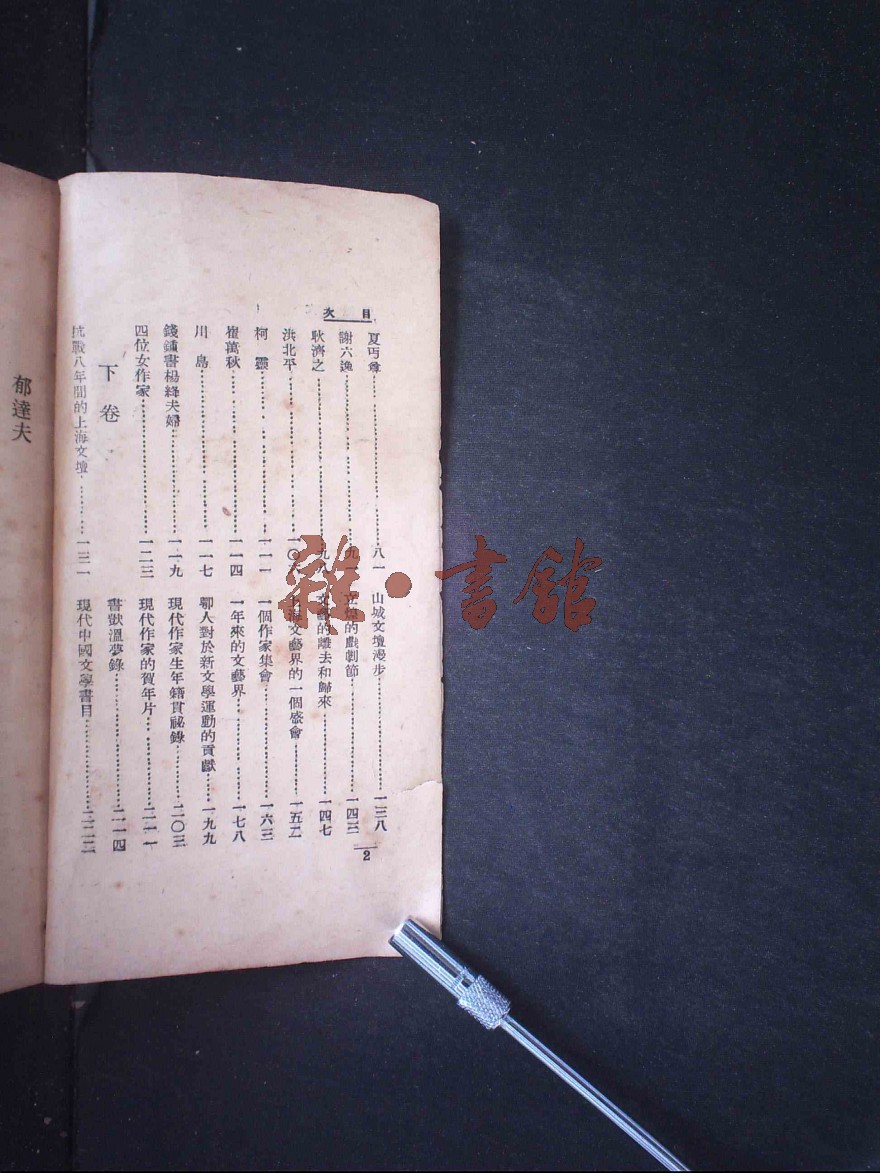 目次
夏丏尊……八一
謝六逸……九一
耿濟之……
洪北平……
柯靈……一一一
崔萬秋……一一四
川島……一一七
錢鍾書楊絳夫婦……一一九
四位女作家……一二三
下卷
抗戰八年間的上海文壇……一三一
山城文壇漫步……一三八
的戲劇節……一四三
的離去和歸來……一四七
上海文藝界的一個盛會……一五二
一個作家集會……一六三
一年來的文藝界……一七八
鄞人對於新文學運動的貢獻……一九九
現代作家生年籍貫祕錄……二〇三
現代作家的賀年片……二一一
書獃溫夢錄……二一四
現代中國文學書目……二二二
2
郁達夫
雜·書館